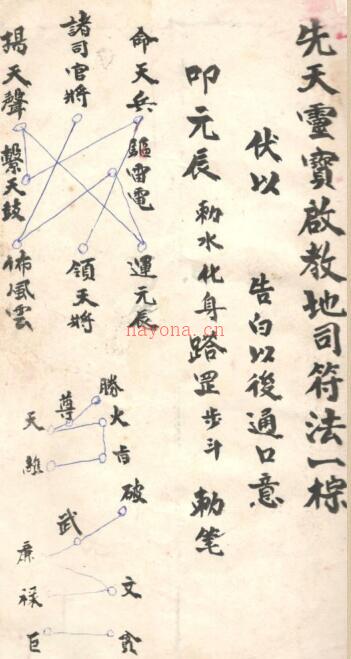 先天靈寶啟教地司符法一棕
伏以 告白以後通口意
叩元辰 勅水化身 路罡步斗 勅笔
命天兵 驅雷電 運元辰
諸司官將 領天將
揚天聲 繫天鼓 佈風雲
勝
尊 火
天
維
破
武
廉 文
祿
巨 貪
nayona.cn